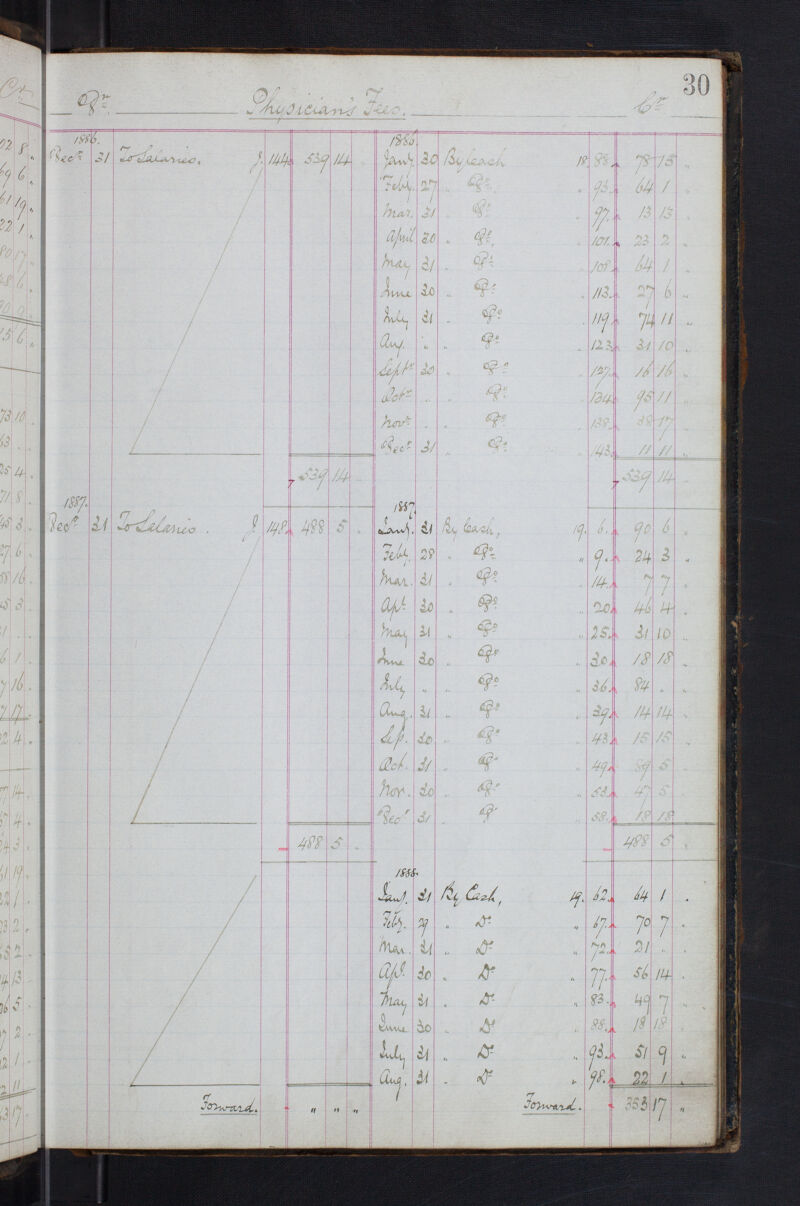 30
Dr. Physician's Fees. Cr.
1886. 1886.
Decr 31 To Salaries. J. 144 539 14 . Jany. 30 By Cash 18 88 78 15 "
Feby. 27 " Do. " 93 64 1 "
Mar. 31 " Do. " 97 13 13 "
April 30 " Do. " 101 23 2 "
May 31 " Do. " 108 64 1 "
June 30 " Do. " 113 27 6 "
July 31 " Do. " 119 74 11 "
Aug. " " Do. " 123 31 10 "
Septr 30 " Do. " 127 16 16 "
Octr " " Do. " 134 95 11 "
Novr " " Do. " 138 38 17 "
Decr 31 " Do. " 143 11 11 "
539 14 539 14
1887. 1887.
Decr 31 To Salaries. J. 148 488 5 . Jany. 31 By Cash, 19. 6. 90 6 .
Feby. 28 " Do. " 9. 24 3 .
Mar. 31 " Do. " 14. 7 7 .
Apl. 30 " Do. " 20 46 4 .
May 31 " Do. " 25. 31 10 .
June 30 " Do. " 30. 18 18 .
July " " Do. " 36. 84 . .
Aug. 31 " Do. " 39. 14 14 .
Sep. 30 " Do. " 43. 15 15 .
Oct. 31 " Do. " 49. 89 5 .
Nov. 30 " Do. " 53. 47 5 .
Decr 31 " Do. " 58. 18 18 .
488 5 . 488 5 .
1888.
Jany. 31 By Cash, 19. 62. 64 1 .
Feby. 29 " Do. " 67. 70 7 .
Mar. 31 " Do. " 72. 21 . .
Apl. 30 " Do. " 77. 56 14 .
May 31 " Do. " 83. 49 7 .
June 30 " Do. " 88. 18 18 .
July 31 " Do. " 93. 51 9 "
Aug. 31 " Do. " 98. 22 1 .
Forward. " " " Forward. 353 17 "